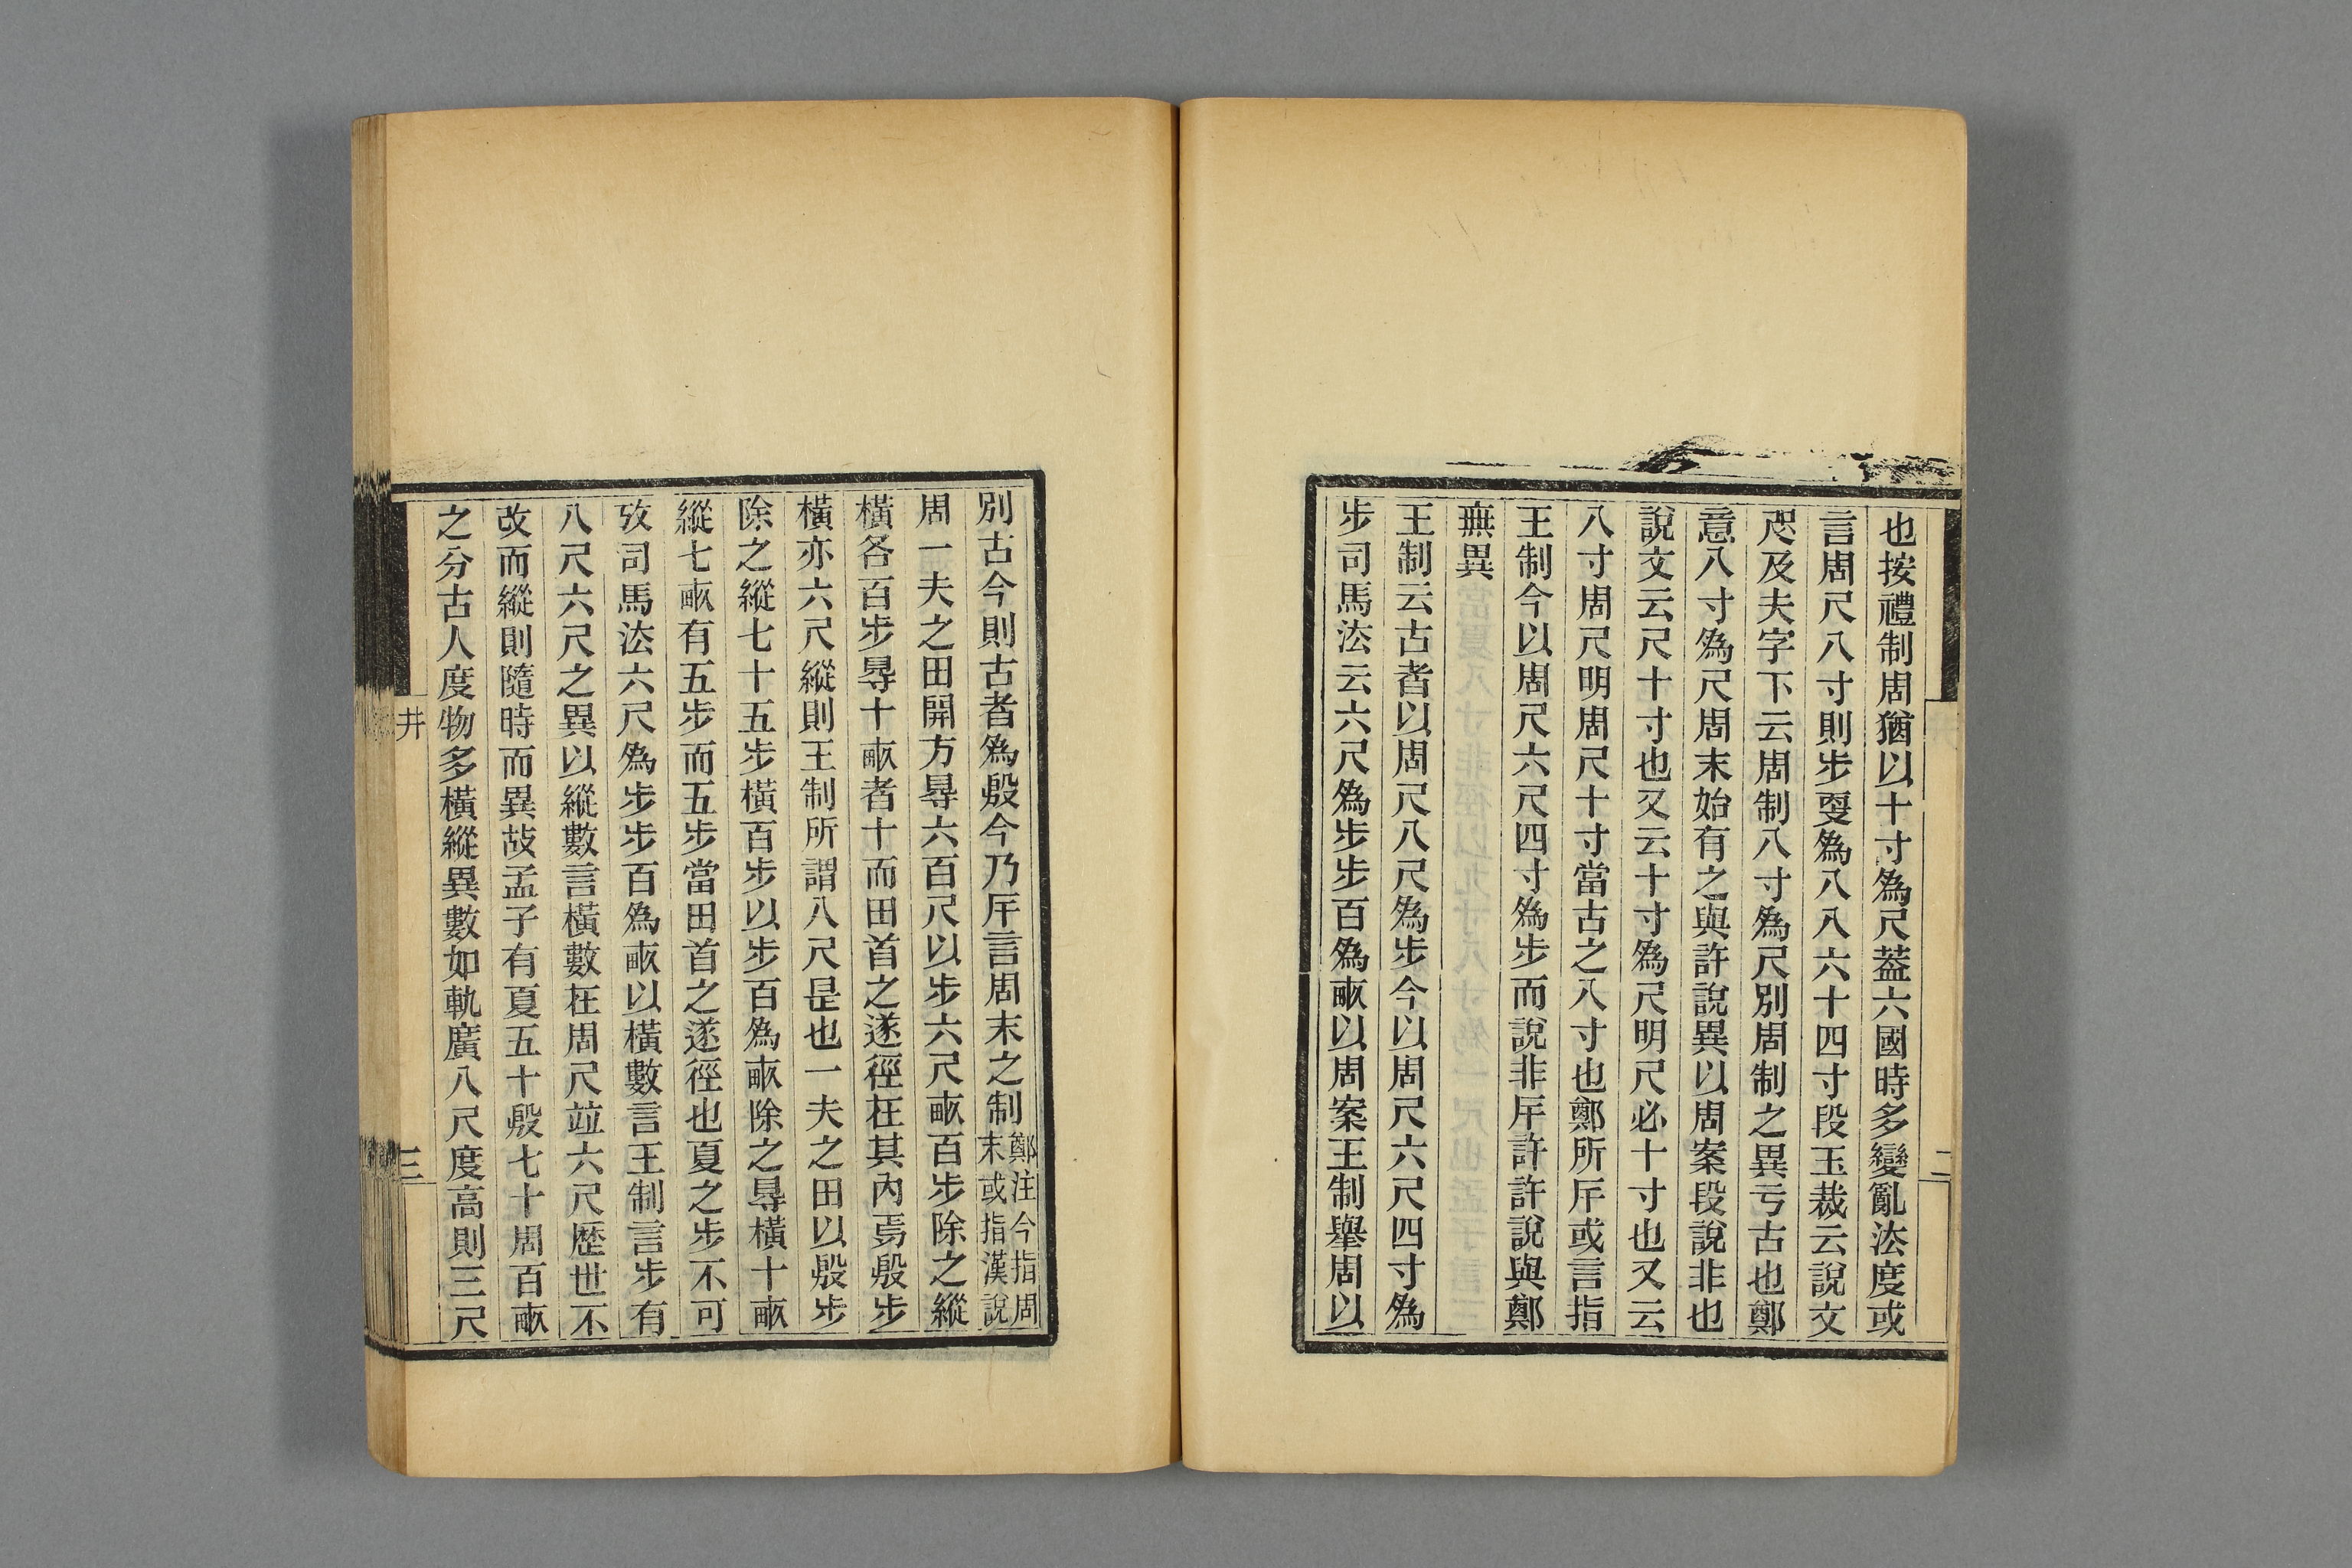 也按禮制周猶以十寸爲尺蓋六國時多變亂法度或
言周尺八寸則步更爲八八六十四寸段玉裁云說文
咫及夫字下云周制八寸爲尺別周制之異亏古也鄭
意八寸爲尺周末始有之與許說異以周案段說非也
說文云尺十寸也又云十寸爲尺明尺必十寸也又云
八寸周尺明周尺十寸當古之八寸也鄭所㡿或言指
王制今以周尺六尺四寸爲步而說非㡿許許說與鄭
無異
王制云古者以周尺八尺爲步今以周尺六尺四寸爲
步司馬法云六尺爲步步百爲畞以周案王制舉周以
二
別古今則古者爲殷今乃㡿言周末之制鄭注今指周
末或指漢說
周一夫之田開方㝵六百尺以步六尺畞百步除之縱
橫各百步㝵十畞者十而田首之遂徑在其內焉殷步
橫亦六尺縱則王制所謂八尺是也一夫之田以殷步
除之縱七十五步橫百步以步百爲畞除之㝵橫十畞
縱七畞有五步而五步當田首之遂徑也夏之步不可
攷司馬法六尺爲步步百爲畞以橫數言王制言步有
八尺六尺之異以縱數言橫數在周尺竝六尺歷世不
改而縱則隨時而異故孟子有夏五十殷七十周百畞
之分古人度物多橫縱異數如軌廣八尺度高則三尺
井
三